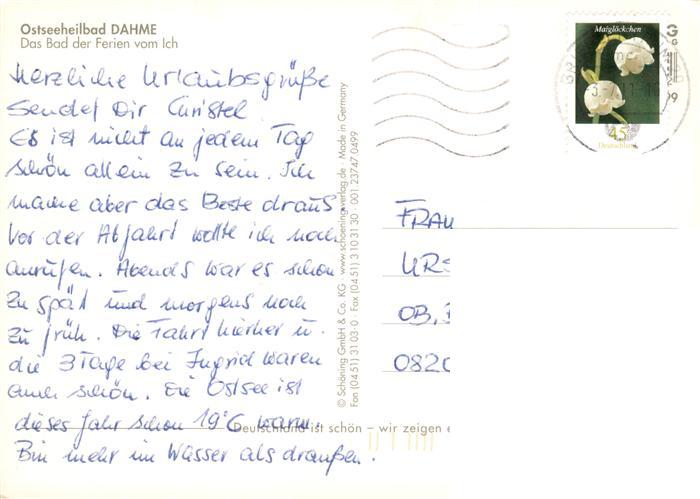 Ostseeheilbad DAHME
Das Bad der Ferien vom Ich
Herzliche Urlaubsgrüße
sendet Dir Christel
Es ist nicht an jedem Tag
schön allein zu sein. Ich
mache aber das Beste drauß.
Vor der Abfahrt wollte ich noch
anrufen. Abends war es schon
zu spät und morgens noch
zu früh. Die Fahrt hierher u.
die 3 Tage bei Ingrid waren
auch schön. Die Ostsee ist
dieses Jahr schon 19°C warm.
Bin mehr im Wasser als draußen.
Deutschland ist schön – wir zeigen e
© Schöning GmbH & Co. KG · www.schoening-verlag.de · Made in Germany
Fon (04 51) 31 03-0 · Fax (04 51) 3 10 31 30 · 001 23747 0499
Maiglöckchen
45
Deutschland
FRAU
URS
OB.
082